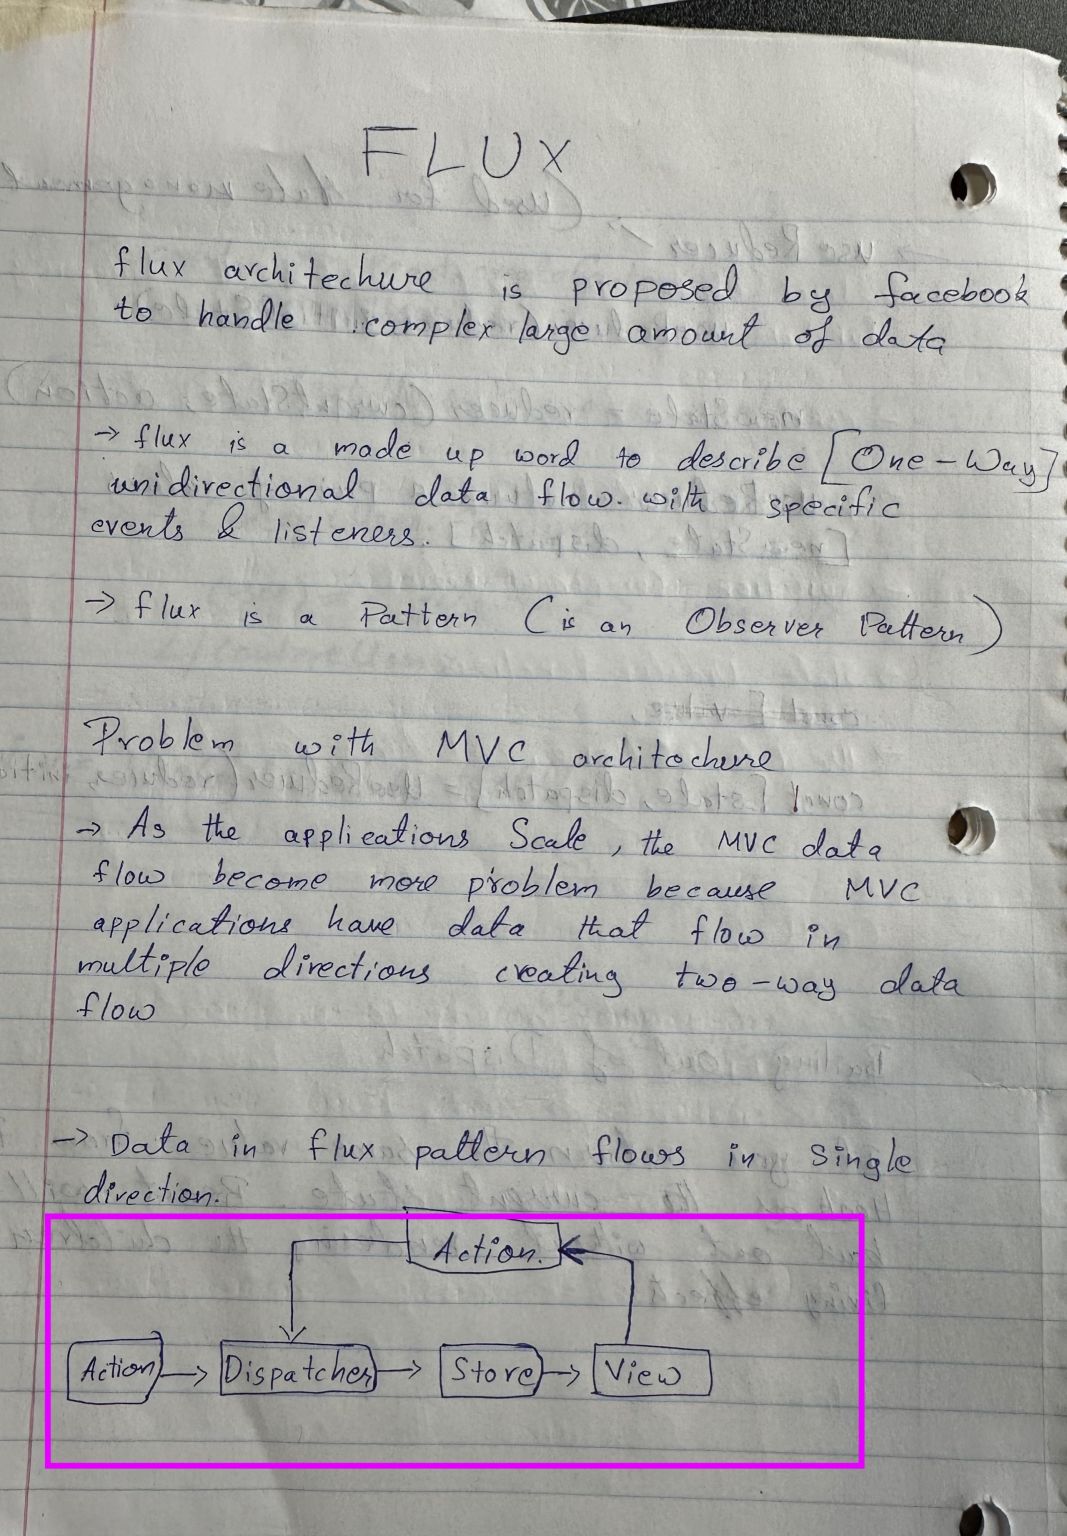 FLUX
flux architechure is proposed by facebook
to handle complex large amount of data
→ flux is a made up word to describe [One-Way]
unidirectional data flow. with specific
events & listeners.
→ flux is a Pattern (is an Observer Pattern)
Problem with MVC architechure
→ As the applications Scale, the MVC data
flow become more problem because MVC
applications have data that flow in
multiple directions creating two-way data
flow
→ Data in flux pattern flows in single
direction.
Action.
Action → Dispatcher → Store → View